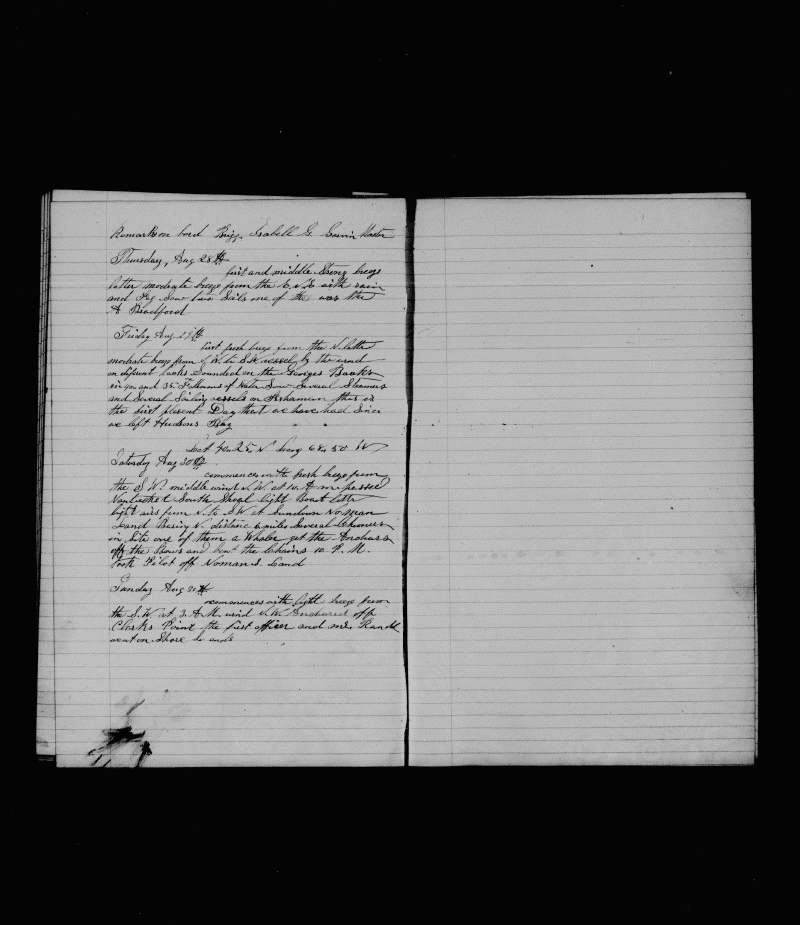 Remarks on bord Brigg Isabell G. Garvin Master
Thursday, Aug 28th
first and middle Strong breeze
latter moderate breeze from the E N E with rain
and Fog Saw two Sails one of the was the
A Bradford
Friday Aug 29th
first fresh breeze from the N. latter
moderate breeze from N. W. to S W vessel by the wind
on difrent tacks Sounded on the Georges Banks
in 40 and 35 Fathoms of Water Saw Several Steamers
and Several Sailing vessels on this is
the first plesent Day that we have had Since
we left Hudsons Bay
Lat 40.25 N Long 68.50 W
Saturday Aug 30th
commences with fresh breeze from
the S. W. middle wind N. W. at 10. A m passed
Nantucket South Shoal light Boat latter
light airs from N. to S W at Sundown No man
Land Baring N. distance 6 miles Several Schooners
in Site one of them a Whaler got the Anchors
off the Bows and bent the Chains 10. P. M.
Took Pilot off Nomans. Land
Sunday Aug 31th
commences with light breeze from
the S. W. at 3. A M. wind N. W. Anchored off
Clarks Point the first officer and mr. Randl
went on Shore So ends